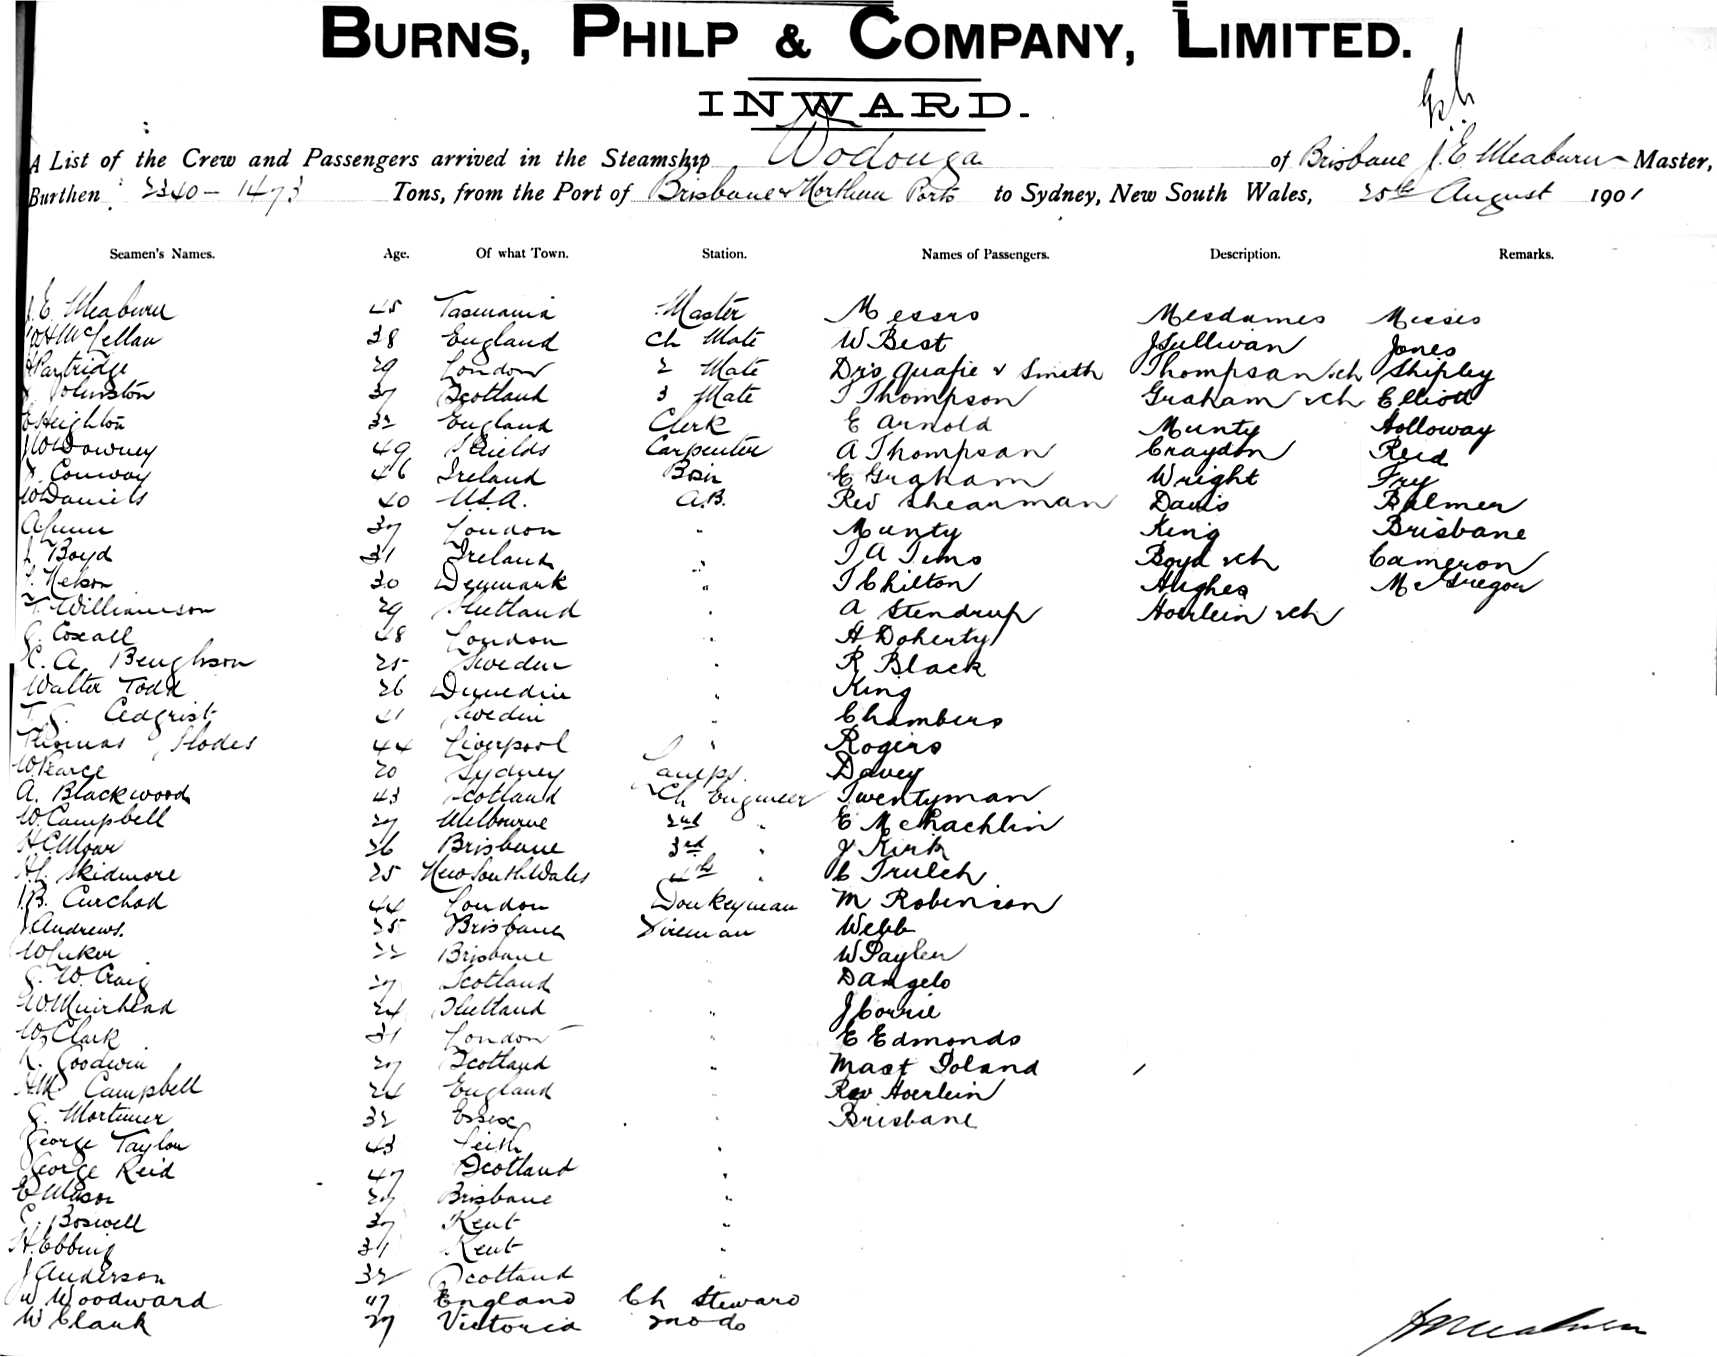 BURNS, PHILP & COMPANY, LIMITED.
INWARD.
A List of the Crew and Passengers arrived in the Steamship Wodonga of Brisbane J. E. Meaburn Master,
Burthen 2340 - 1473 Tons, from the Port of Brisbane & Northern Ports to Sydney, New South Wales, 25th August 1901
Seamen's Names. Age. Of what Town. Station. Names of Passengers. Description. Remarks.
J. E. Meaburn 45 Tasmania Master Messrs Mesdames Misses
W H McLellan 38 England Ch Mate W Best J Sullivan Jones
H Partridge 29 London 2 Mate Drs Quafie & Smith Thompson & ch Shipley
J. Johnston 37 Scotland 3 Mate T Thompson Graham & ch Elliott
E Heighton 32 England Clerk E Arnold Munty Holloway
J W Downey 49 Shields Carpenter A Thompson Craydon Reid
J. Conway 46 Ireland Bosn E Graham Wright Fry
W Daniels 40 U.S.A. A.B. Rev Shearman Davis Balmer
A Lunn 37 London " Munty King Brisbane
J. Boyd 31 Ireland " T A Tims Boyd & ch Cameron
P. Nelson 30 Denmark " T Chilton Hughes McGregor
T. Williamson 29 Shetland " A Stendrup Hoerlein & ch
G. Coxall 48 London " H Doherty
C. A. Bengtsson 25 Sweden " R Black
Walter Todd 26 Dunedin " King
T. G. Cedgrist 41 Sweden " Chambers
Thomas Slodes 44 Liverpool " Rogers
W Pearce 20 Sydney Lamps. Davey
A. Blackwood 43 Scotland Ch Engineer Twentyman
W. Campbell 27 Melbourne 2nd " E McEachlin
H C Moar 26 Brisbane 3rd " J Kirk
H. Skidmore 25 New South Wales 4th " C Trulch
J. B. Curchod 44 London Donkeyman M Robinson
J Andrews. 25 Brisbane Fireman Webb
W Juker 22 Brisbane W Paylen
G. W. Craig 27 Scotland D Angelo
W. Muirhead 24 Shetland " J Corrie
W. Clark 31 London " E Edmonds
R. Goodwin 27 Scotland " Mast Toland
H. M. Campbell 24 England " Rev Hoerlein
G. Mortimer 32 Essex " Brisbane
George Taylor 43 Leith "
George Reid 47 Scotland "
E Mason 27 Brisbane "
C. Boswell 37 Kent "
H. Ebbing 31 Kent "
J Anderson 32 Scotland "
W Woodward 47 England Ch Steward
W Clark 27 Victoria 2nd do